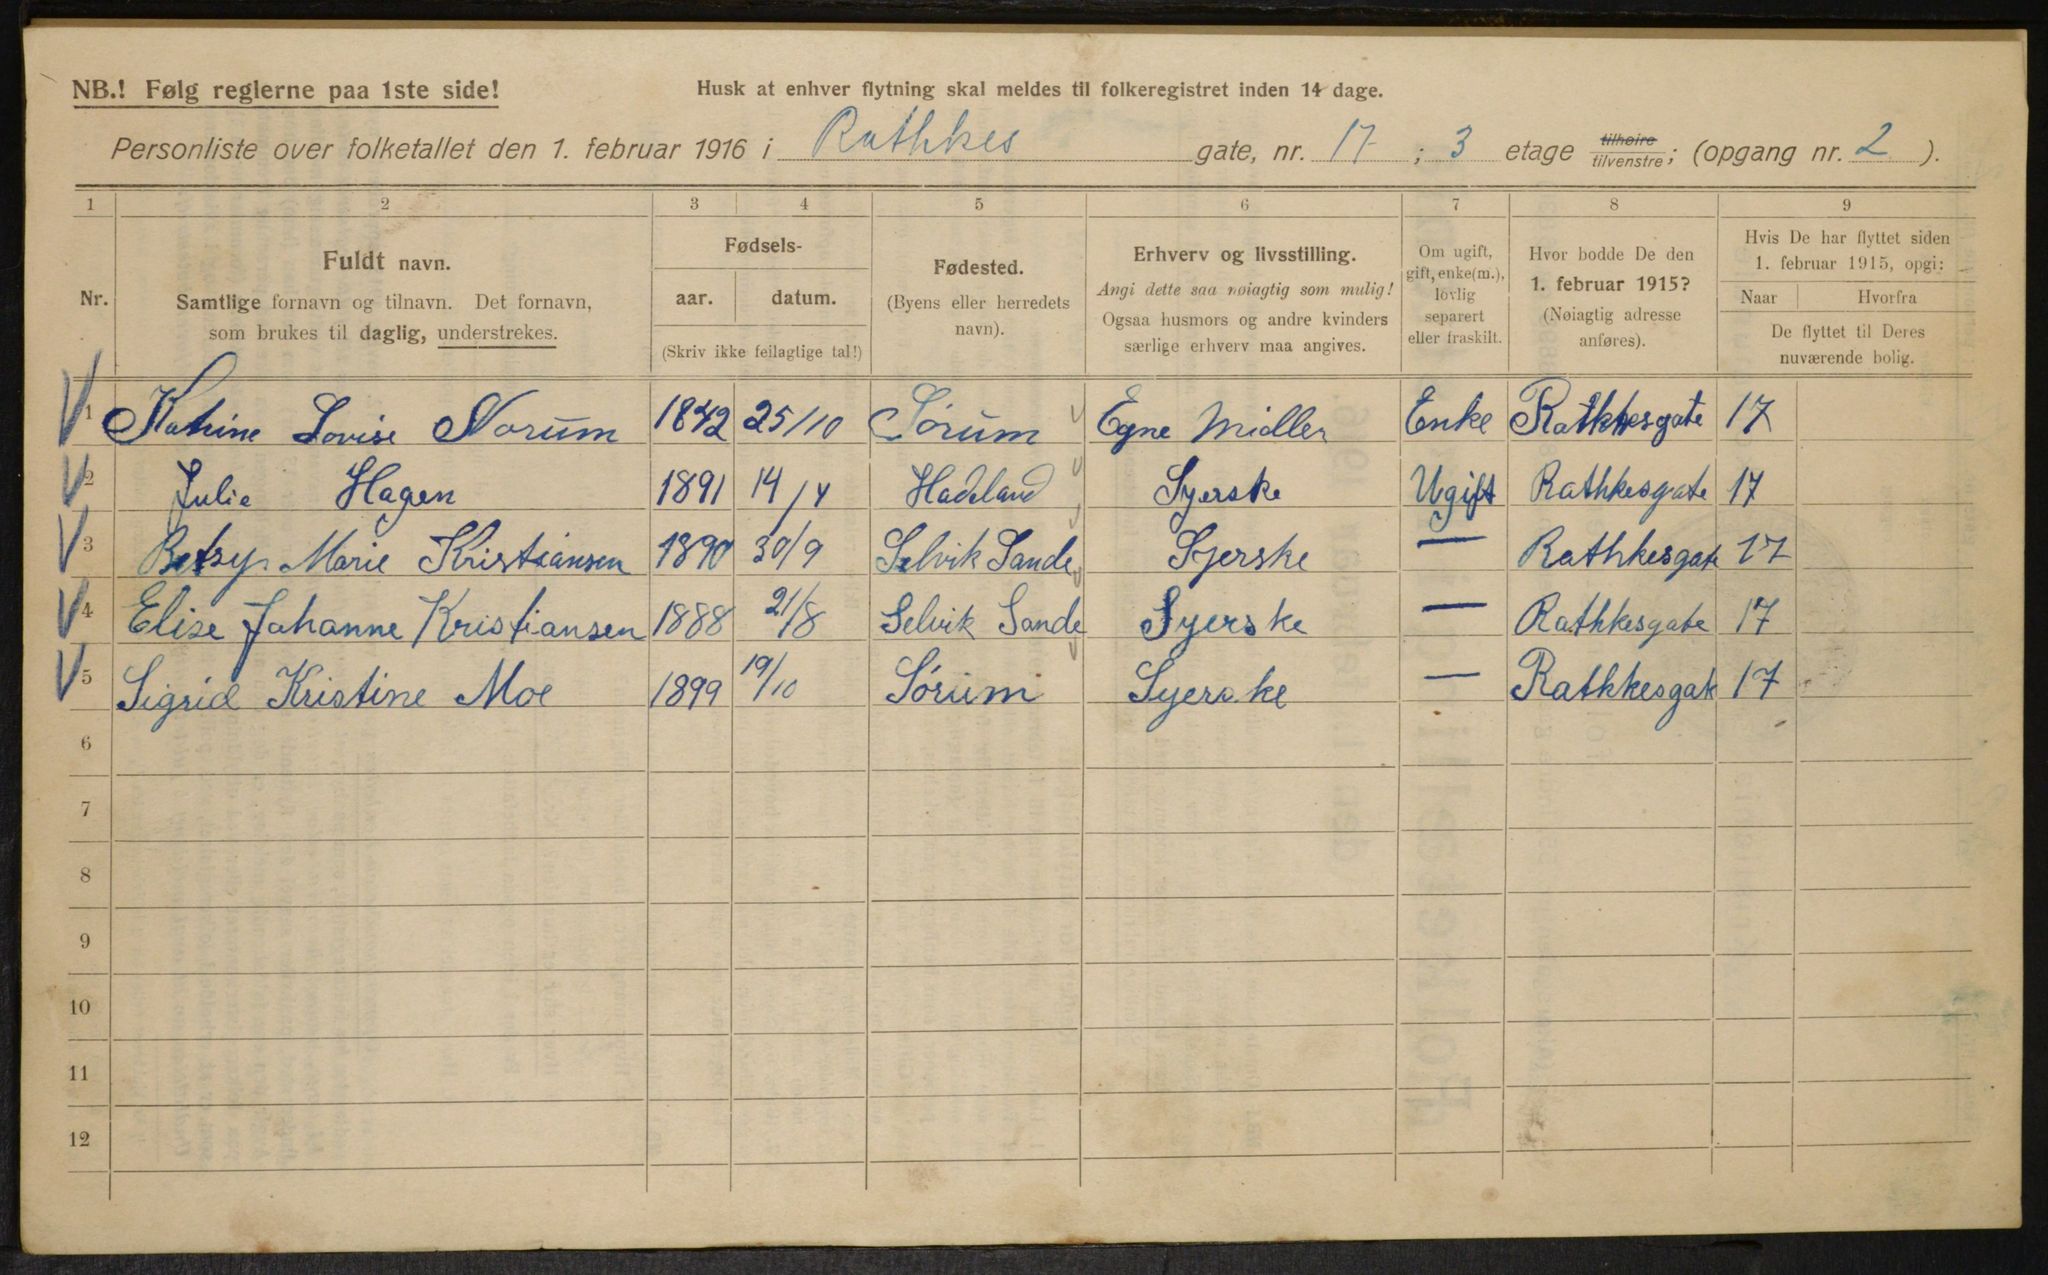 NB.! Følg reglerne paa 1ste side!
Husk at enhver flytning skal meldes til folkeregistret inden 14 dage.
Personliste over folketallet den 1. februar 1916 i Rathkes gate, nr. 17 ; 3 etage tilhøire/tilvenstre; (opgang nr. 2 ).
1 2 3 4 5 6 7 8 9
Nr.
Fuldt navn.
Samtlige fornavn og tilnavn. Det fornavn,
som brukes til daglig, understrekes.
Fødsels-
aar. datum.
(Skriv ikke feilagtige tal!)
Fødested.
(Byens eller herredets
navn).
Erhverv og livsstilling.
Angi dette saa nøiagtig som mulig!
Ogsaa husmors og andre kvinders
særlige erhverv maa angives.
Om ugift,
gift, enke(m.),
lovlig
separert
eller fraskilt.
Hvor bodde De den
1. februar 1915?
(Nøiagtig adresse
anføres).
Hvis De har flyttet siden
1. februar 1915, opgi:
Naar Hvorfra
De flyttet til Deres
nuværende bolig.
1 Katrine Lovise Norum 1842 25/10 Sørum Egne Midller Enke Rathkesgate 17
2 Julie Hagen 1891 14/4 Hadeland Syerske Ugift Rathkesgate 17
3 Betsy Marie Kristiansen 1890 30/9 Selvik Sande Syerske — Rathkesgate 17
4 Elise Johanne Kristiansen 1888 21/8 Selvik Sande Syerske — Rathkesgate 17
5 Sigrid Kristine Moe 1899 19/10 Sørum Syerske — Rathkesgate 17
6
7
8
9
10
11
12